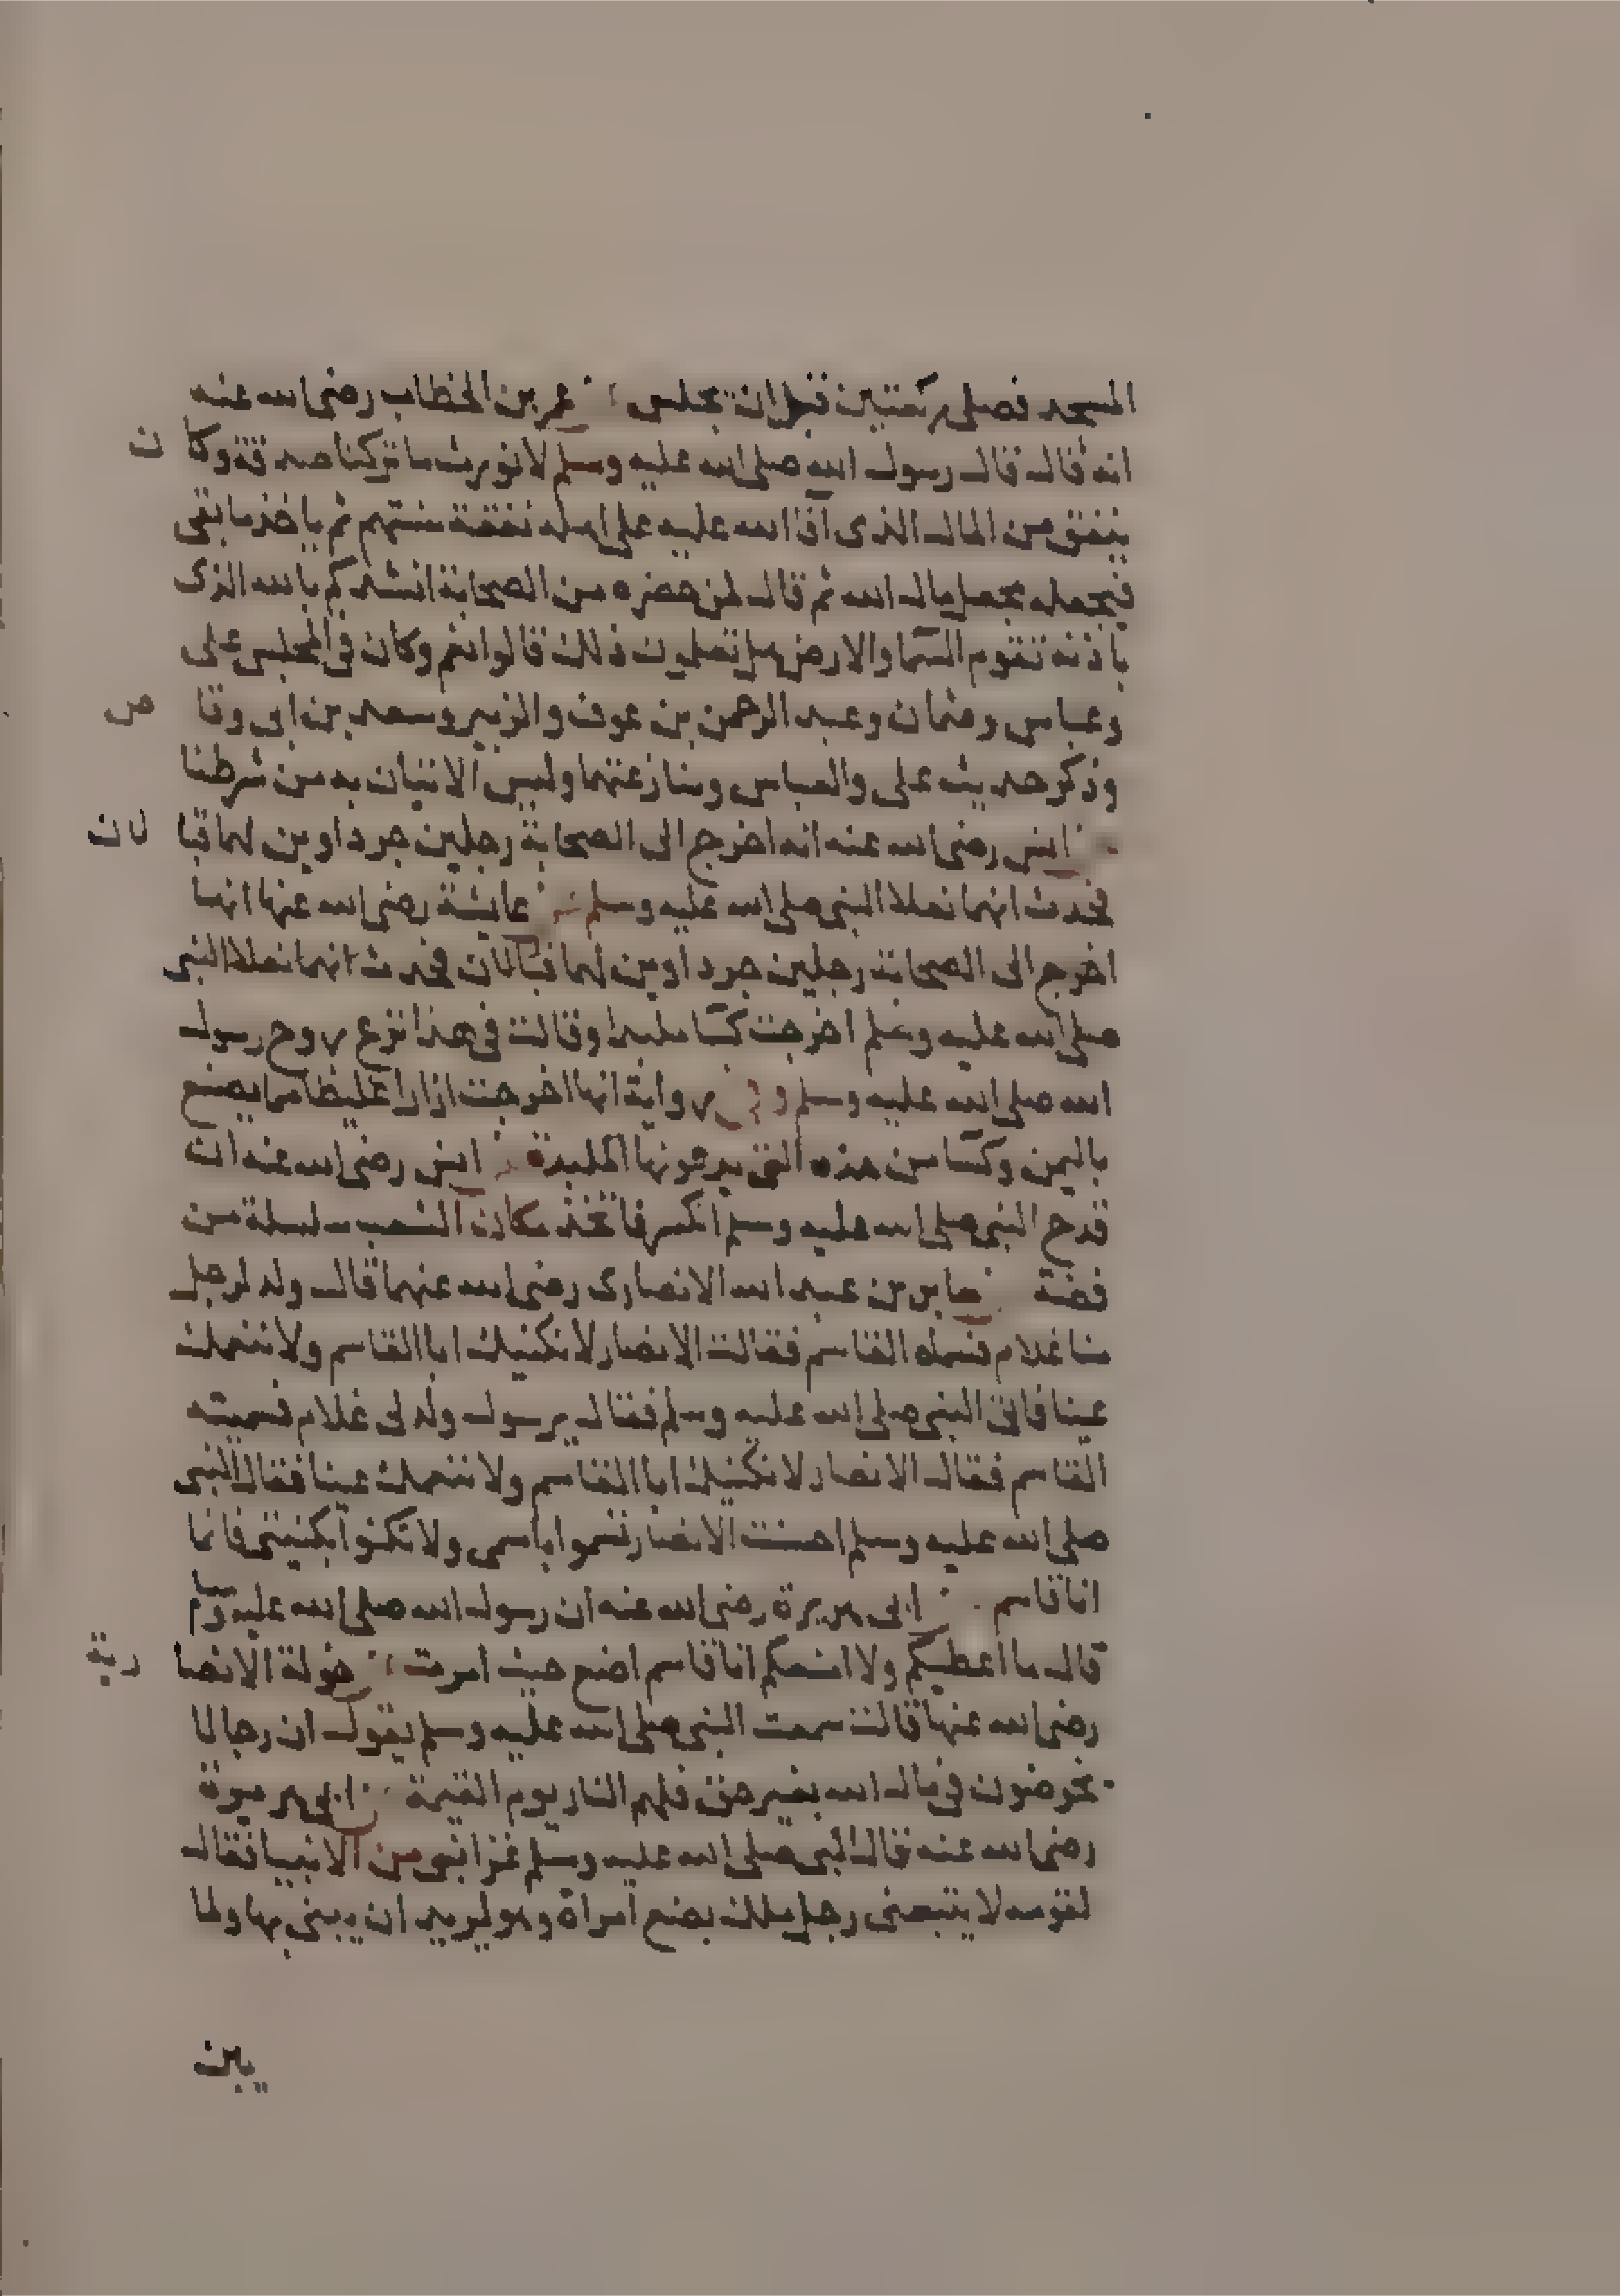 المسجد فصلى ركعتين قبل ان يجلس عمر بن الخطاب رضى الله عنه
انه قال قال رسول الله صلى الله عليه وسلم لا نورث ما تركنا صدقة وكان
ينفق من المال الذى افا الله عليه على اهله نفقة سنتهم ثم ياخذ ما بقى
فيجعله مجعل مال الله ثم قال لمن حضره من الصحابة انشدكم بالله الذى
باذنه تقوم السما والارض هل تعلمون ذلك قالوا نعم وكان فى المجلس على
وعباس وعثمان وعبد الرحمن بن عوف والزبير وسعد بن ابى وقاص
وذكر حديث على والعباس ومنازعتهما وليس الاتيان به من شرطنا
انس رضى الله عنه انه اخرج الى الصحابة رجلين جرداوين لهما قبالان
فحدث انهما نعلا النبى صلى الله عليه وسلم عايشة رضى الله عنها انها
اخرج الى الصحابة رجلين جرداوين لهما قبالان فحدث انهما نعلا النبى
صلى الله عليه وسلم اخرجت كسا ملبدا وقالت فى هذا نزع روح رسول
الله صلى الله عليه وسلم وفى رواية انها اخرجت ازارا غليظا مما يصنع
باليمن وكسا من هذه التى يدعونها الملبدة انس رضى الله عنه ان
قدح النبى صلى الله عليه وسلم انكسر فاتخذ مكان الشعب سلسلة من
فضة جابر بن عبد الله الانصارى رضى الله عنهما قال ولد لرجل
منا غلام فسماه القاسم فقالت الانصار لا نكنيك ابا القاسم ولا ننعمك
عينا فاتى النبى صلى الله عليه وسلم فقال يرسول ولد لى غلام فسميته
القاسم فقال الانصار لا نكنيك ابا القاسم ولا ننعمك عينا فقال النبى
صلى الله عليه وسلم احسنت الانصار تسموا باسمى ولا تكنوا بكنيتى فانا
انا قاسم ابى هريرة رضى الله عنه ان رسول الله صلى الله عليه وسلم
قال ما اعطيكم ولا امنعكم انا قاسم اضع حيث امرت خولة الانصارية
رضى الله عنها قالت سمعت النبى صلى الله عليه وسلم يقول ان رجالا
يخوضون فى مال الله بغير حق فلهم النار يوم القيمة ابى هريرة
رضى الله عنه قال النبى صلى الله عليه وسلم غزا نبى من الانبيا فقال
لقومه لا يتبعنى رجل ملك بضع امراة وهو يريد ان يبنى بها ولما
يبن